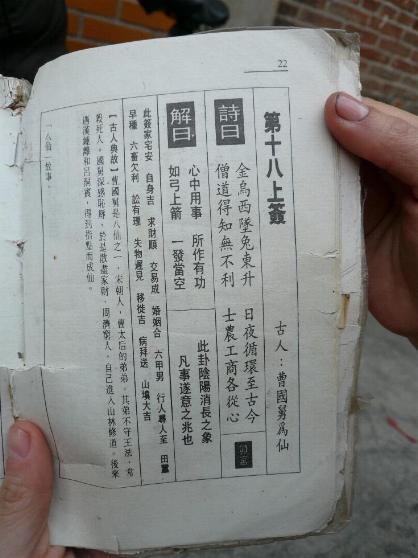 22
第十八上簽
古人：曹國舅為仙
詩曰
金烏西墜兔東升 日夜循環至古今
僧道得知無不利 士農工商各從心
解曰
心中用事 所作有功
如弓上箭 一發當空
此卦陰陽消長之象
凡事遂意之兆也
此簽家宅安 自身吉 求財順 交易成 婚姻合 六甲男 行人尋人至 田蠶
早種 六畜欠利 訟有理 失物遲見 移徙吉 病拜送 山墳大吉
【古人典故】曹國舅是八仙之一，宋朝人，曹太后的弟弟。其弟不守王法，常
殺死人。國舅深感恥辱，於是散盡家財，周濟窮人，自己進入山林修道。後來
遇漢鍾離和呂洞賓，得到指點而成仙。
「八仙」故事。